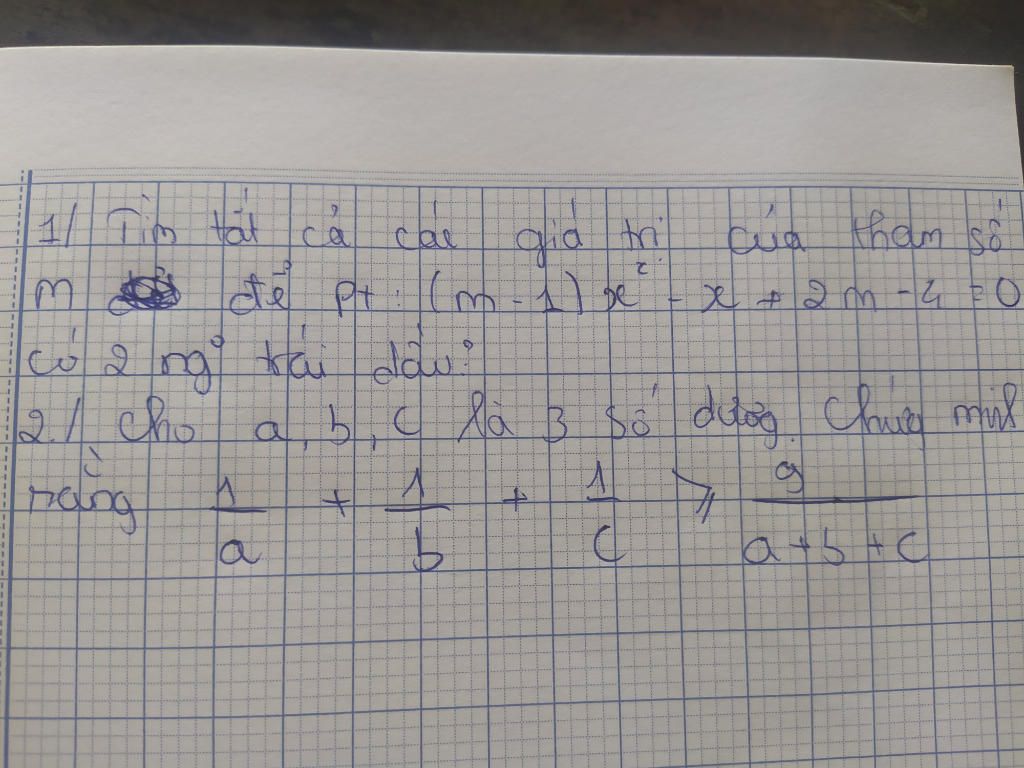 1/ Tìm tất cả các giá trị của tham số
m để pt: (m - 1)x² - x + 2m - 4 = 0
có 2 ng° trái dấu?
2./ Cho a, b, c là 3 số dương. Chứng minh
rằng 1/a + 1/b + 1/c ⩾ 9/(a + b + c)